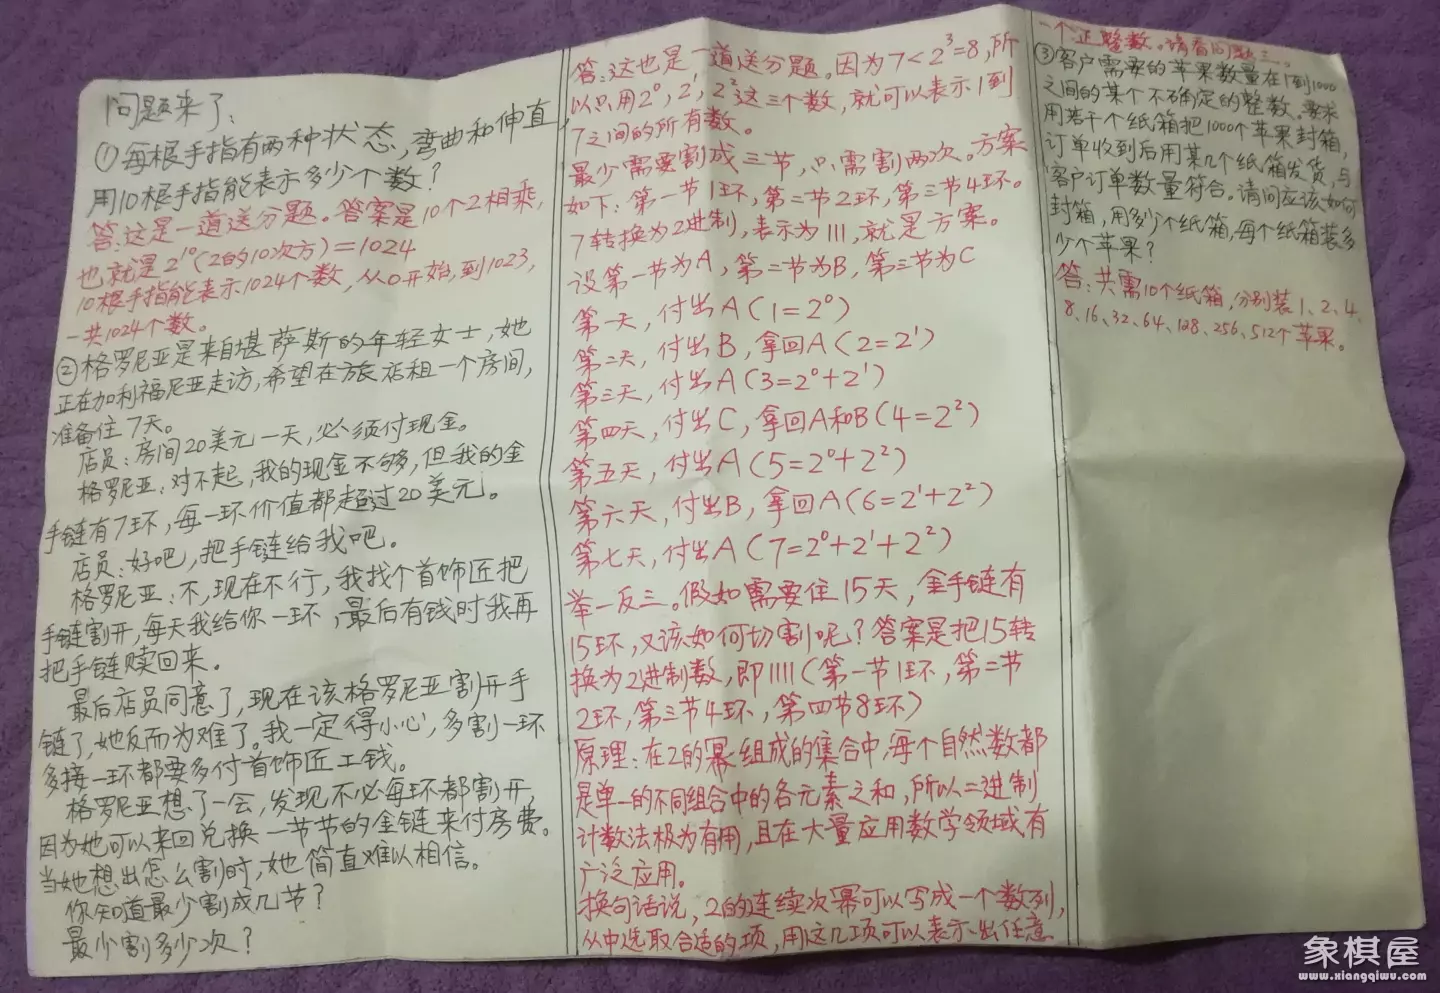 问题来了：
①每根手指有两种状态，弯曲和伸直，
用10根手指能表示多少个数？
答：这是一道送分题。答案是10个2相乘，
也就是2¹⁰（2的10次方）=1024
10根手指能表示1024个数，从0开始，到1023，
一共1024个数。
②格罗尼亚是来自堪萨斯的年轻女士，她
正在加利福尼亚走访，希望在旅店租一个房间，
准备住7天。
店员：房间20美元一天，必须付现金。
格罗尼亚：对不起，我的现金不够，但我的金
手链有7环，每一环价值都超过20美元。
店员：好吧，把手链给我吧。
格罗尼亚：不，现在不行，我找个首饰匠把
手链割开，每天我给你一环，最后有钱时我再
把手链赎回来。
最后店员同意了，现在该格罗尼亚割开手
链了，她反而为难了。我一定得小心，多割一环
多接一环都要多付首饰匠工钱。
格罗尼亚想了一会，发现不必每环都割开，
因为她可以来回兑换一节节的金链来付房费。
当她想出怎么割时，她简直难以相信。
你知道最少割成几节？
最少割多少次？
答：这也是一道送分题。因为7<2³=8，所
以只用2⁰，2¹，2²这三个数，就可以表示1到
7之间的所有数。
最少需要割成三节，只需割两次。方案
如下：第一节1环，第二节2环，第三节4环。
7转换为2进制，表示为111，就是方案。
设第一节为A，第二节为B，第三节为C
第一天，付出A（1=2⁰）
第二天，付出B，拿回A（2=2¹）
第三天，付出A（3=2⁰+2¹）
第四天，付出C，拿回A和B（4=2²）
第五天，付出A（5=2⁰+2²）
第六天，付出B，拿回A（6=2¹+2²）
第七天，付出A（7=2⁰+2¹+2²）
举一反三。假如需要住15天，金手链有
15环，又该如何切割呢？答案是把15转
换为2进制数，即1111（第一节1环，第二节
2环，第三节4环，第四节8环）
原理：在2的幂组成的集合中，每个自然数都
是单一的不同组合中的各元素之和，所以二进制
计数法极为有用，且在大量应用数学领域有
广泛应用。
换句话说，2的连续次幂可以写成一个数列，
从中选取合适的项，用这几项可以表示出任意
一个正整数。请看问题三。
③客户需要的苹果数量在1到1000
之间的某个不确定的整数。要求
用若干个纸箱把1000个苹果封箱，
订单收到后用某几个纸箱发货，与
客户订单数量符合。请问应该如何
封箱，用多少个纸箱，每个纸箱装多
少个苹果？
答：共需10个纸箱，分别装1、2、4、
8、16、32、64、128、256、512个苹果。
象棋屋
www.xiangqiwu.com